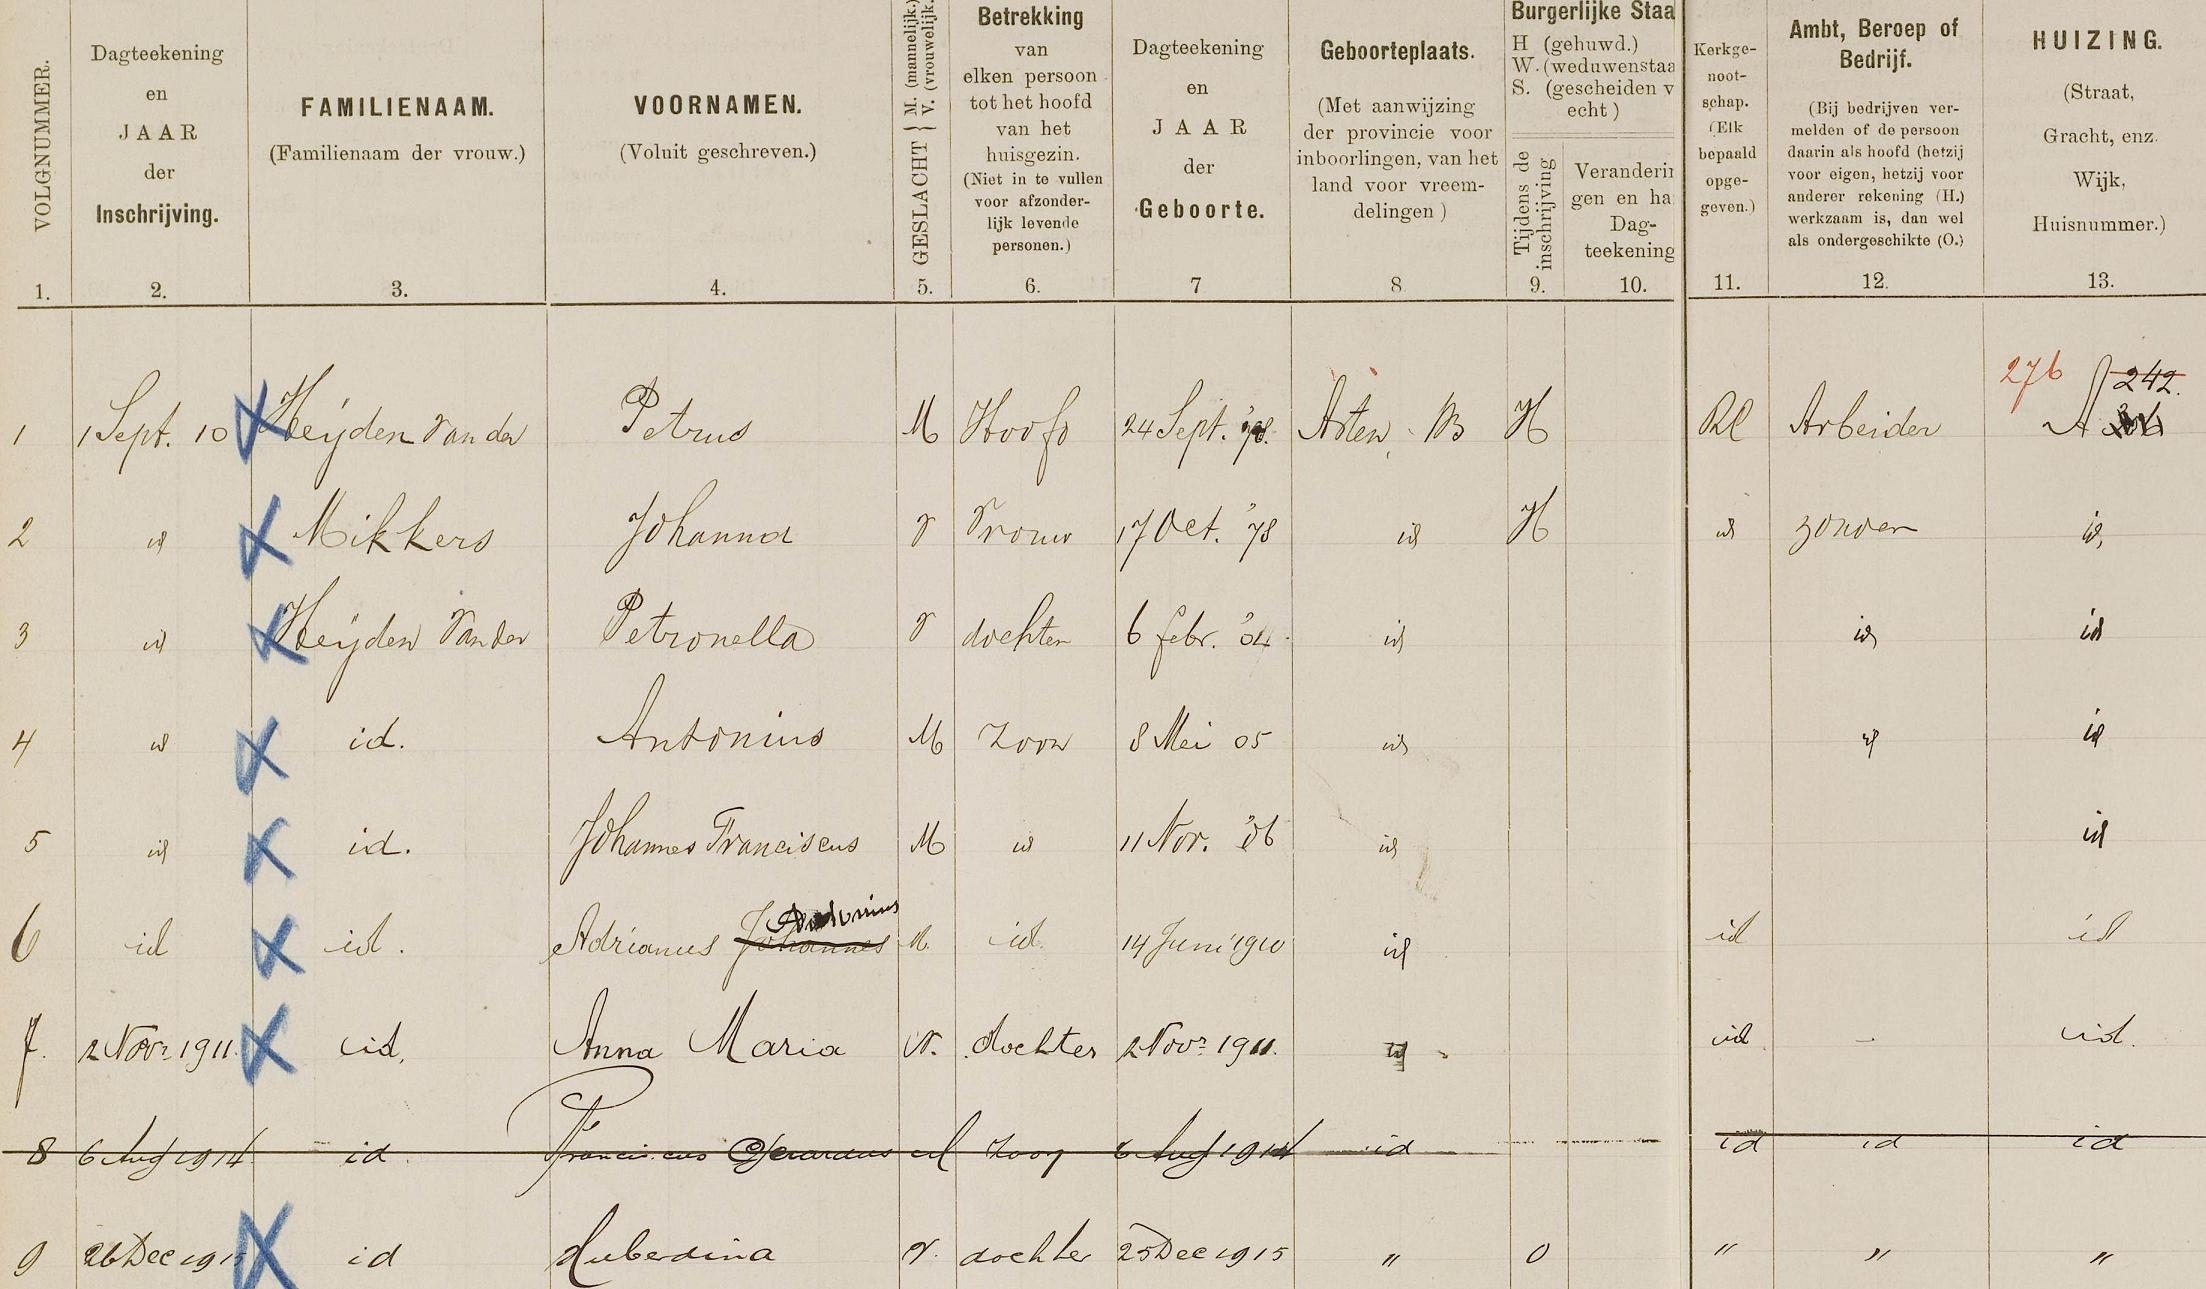 VOLGNUMMER.
Dagteekening
en
JAAR
der
Inschrijving.
FAMILIENAAM.
(Familienaam der vrouw.)
VOORNAMEN.
(Voluit geschreven.)
GESLACHT { M. (mannelijk.) V. (vrouwelijk.
Betrekking
van
elken persoon
tot het hoofd
van het
huisgezin.
(Niet in te vullen
voor afzonder-
lijk levende
personen.)
Dagteekening
en
JAAR
der
Geboorte.
Geboorteplaats.
(Met aanwijzing
der provincie voor
inboorlingen, van het
land voor vreem-
delingen)
Burgerlijke Staa
H (gehuwd.)
W. (weduwenstaa
S. (gescheiden v
echt)
Tijdens de
inschrijving
Veranderin
gen en ha
Dag-
teekening
Kerkge-
noot-
schap.
(Elk
bepaald
opge-
geven.)
Ambt, Beroep of
Bedrijf.
(Bij bedrijven ver-
melden of de persoon
daarin als hoofd (hetzij
voor eigen, hetzij voor
anderer rekening (H.)
werkzaam is, dan wel
als ondergeschikte (O.)
HUIZING.
(Straat,
Gracht, enz.
Wijk,
Huisnummer.)
1. 2. 3. 4. 5. 6. 7 8 9. 10. 11. 12. 13.
276 242.
1 1 Sept. 10 Heyden van der Petrus M Hoofd 24 Sept. '78. Asten, NB H RC Arbeider A
2 id Mikkers Johanna V Vrouw 17 Oct. '78 id H id zonder id,
3 id Heyden van der Petronella V dochter 6 febr. '04. id id id
4 id id. Antonius M Zoon 8 Mei 05 id id id
5 id id. Johannes Franciscus M id 11 Nov. '06 id id
Antonius
6 id id. Adrianus Johannes M. id. 14 Juni 1910 id id id
7. 2 Novr 1911. id, Anna Maria V. dochter 2 Novr 1911. id id - id.
8 6 Aug 1914. id. Franciscus Gerardus M Zoon 6 Aug 1914 id id id id
9 26 Dec 1915 id Huberdina V. dochter 25 Dec 1915 " O " " "